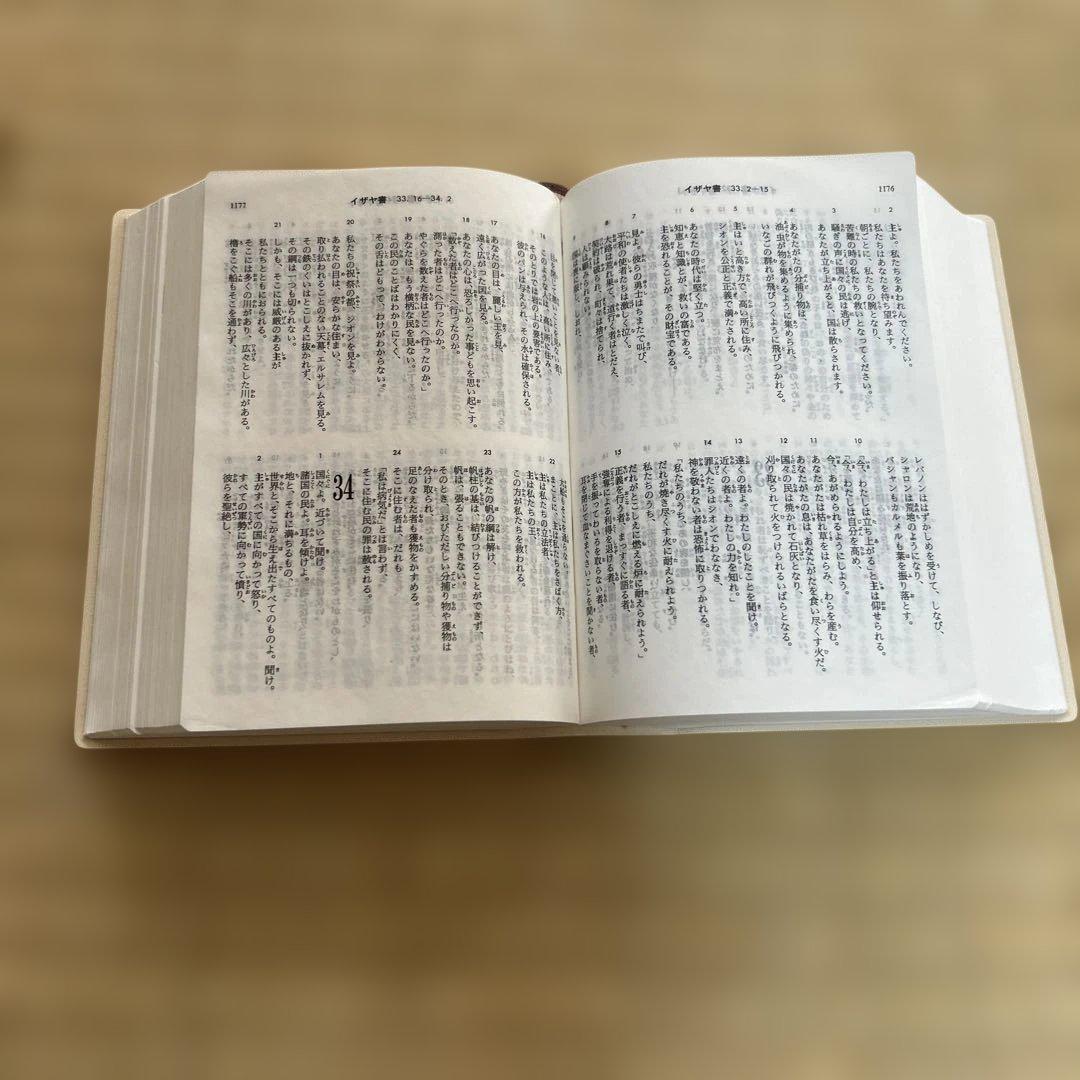 イザヤ書 33. 2―15
1176
2 主よ。私たちをあわれんでください。
私たちはあなたを待ち望みます。
朝ごとに、私たちの腕となり、
苦難の時の私たちの救いとなってください。
3 騒ぎの声に国々の民は逃げ、
あなたが立ち上がると、国々は散らされます。
4 あなたがたの分捕り物は、
油虫が物を集めるように集められ、
いなごの群れが飛びつくように飛びつかれる。
5 主はいと高き方で、高い所に住み、
シオンを公正と正義で満たされる。
6 あなたの時代は堅く立つ。
知恵と知識とが、救いの富である。
主を恐れることが、その財宝である。
7 見よ。彼らの勇士はちまたで叫び、
平和の使者たちは激しく泣く。
8 大路は荒れ果て、道行く者はとだえ、
契約は破られ、町々は捨てられ、
人は顧みられない。
レバノンははずかしめを受けて、しなび、
シャロンは荒地のようになり、
バシャンもカルメルも葉を振り落とす。
10 「今、わたしは立ち上がる」と主は仰せられる。
「今、わたしは自分を高め、
今、あがめられるようにしよう。
11 あなたがたは枯れ草をはらみ、わらを産む。
あなたがたの息は、あなたがたを食い尽くす火だ。
12 国々の民は焼かれて石灰となり、
刈り取られて火をつけられるいばらとなる。
13 遠くの者よ。わたしのしたことを聞け。
近くの者よ。わたしの力を知れ。」
14 罪人たちはシオンでわななき、
神を敬わない者は恐怖に取りつかれる。
「私たちのうち、
だれが焼き尽くす火に耐えられよう。
私たちのうち、
だれがとこしえに燃える炉に耐えられよう。」
15 正義を行う者、まっすぐに語る者、
強奪による利得を退ける者、
手を振ってわいろを取らない者、
耳を閉じて血なまぐさいことを聞かない者、
イザヤ書 33. 16―34. 2
1177
16 このような人は、高い所に住み、
そのとりでは岩の上の要害である。
彼のパンは与えられ、その水は確保される。
17 あなたの目は、麗しい王を見、
遠く広がった国を見る。
18 あなたの心は、恐ろしかった事どもを思い起こす。
「数えた者はどこへ行ったのか。
測った者はどこへ行ったのか。
やぐらを数えた者はどこへ行ったのか。」
19 あなたは、もう横柄な民を見ない。
この民のことばはわかりにくく、
その舌はどもって、わけがわからない。
20 私たちの祝祭の都、シオンを見よ。
あなたの目は、安らかな住まい、
取り払われることのない天幕、エルサレムを見る。
その鉄のくいはとこしえに抜かれず、
その綱は一つも切られない。
21 しかも、そこには威厳のある主が
私たちとともにおられる。
そこには多くの川があり、広々とした川がある。
櫓をこぐ船もそこを通わず、
22 まことに、主は私たちをさばく方、
主は私たちの立法者、
主は私たちの王、
この方が私たちを救われる。
23 あなたの帆の綱は解け、
帆柱の基は、結びつけることができず、
帆は、張ることもできない。
そのとき、おびただしい分捕り物や獲物は
分け取られ、
足のなえた者も獲物をかすめる。
24 そこに住む者は、だれも
「私は病気だ」とは言わず、
そこに住む民の罪は赦される。
34
1 国々よ。近づいて聞け。
諸国の民よ。耳を傾けよ。
地と、それに満ちるもの、
世界と、そこから生え出たすべてのものよ。聞け。
2 主がすべての国に向かって怒り、
すべての軍勢に向かって憤り、
彼らを聖絶し、